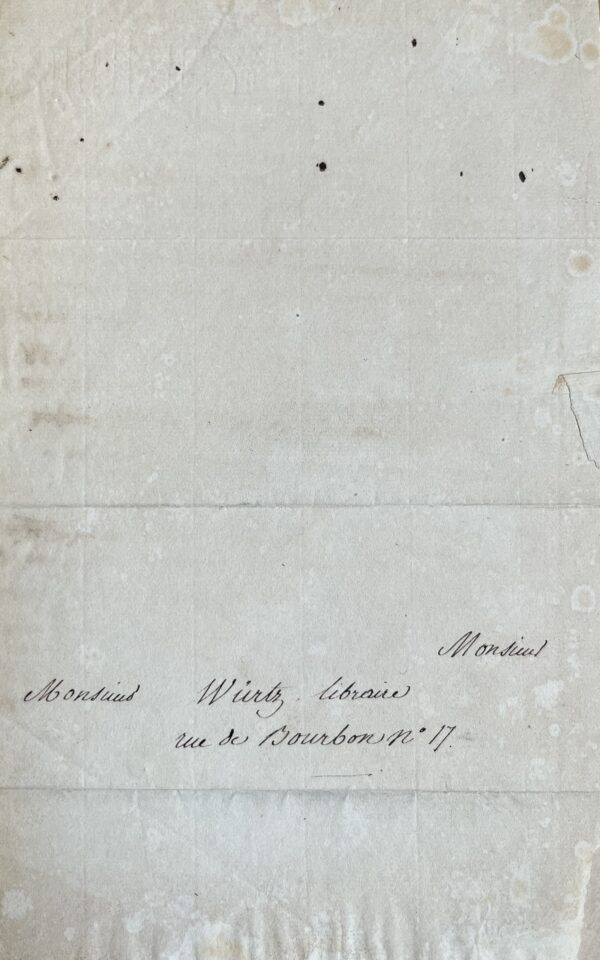 Monsieur
Monsieur Würtz libraire
rue de Bourbon n° 17.